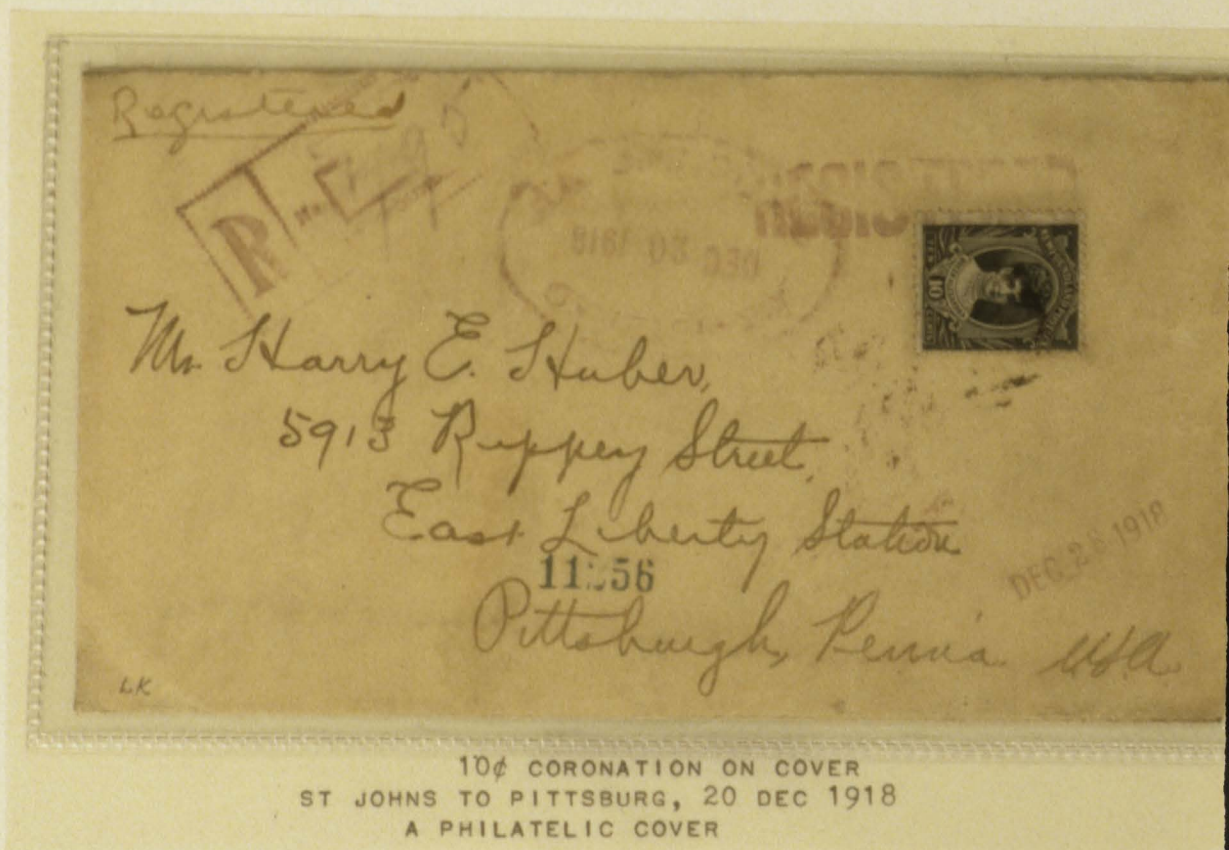 Registered
R No.
REGISTERED
DEC 20 1918
10
Mr. Harry E. Huber,
5913 Rippey Street,
East Liberty Station
Pittsburgh, Penna USA
DEC 28 1918
LK
10¢ CORONATION ON COVER
ST JOHNS TO PITTSBURG, 20 DEC 1918
A PHILATELIC COVER